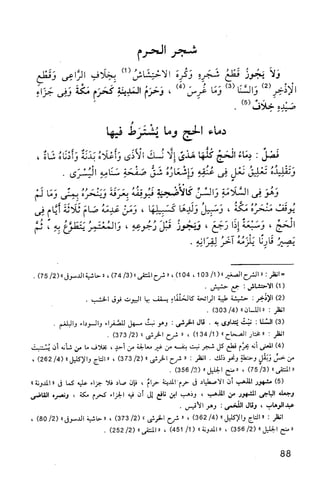 شجر الحرم
وَلاَ يَجُوزُ قَطْعُ شَجَرِهِ وَكُرِهَ الاحْتِشَاشُ (1) بِخِلَافِ الرَّاعِي وَقَطْعِ
الاِذْخِرِ (2) وَالسَّنَا (3) وَمَا غُرِسَ (4) ، وَحَرَمُ المَدِينَةِ كَحَرَمِ مَكَّةَ وَفِي جَزَاءِ
صَيْدِهِ خِلَافٌ (5) .
دماء الحج وما يُشْتَرَطُ فيها
فَصْلٌ : دِمَاءُ الحَجِّ كُلُّهَا هَدْيٌ إِلَّا نُسُكَ الأَذَى وَأَعْلَاهُ بَدَنَةٌ وَأَدْنَاهُ شَاةٌ ،
وَتَقْلِيدُهُ تَعْلِيقُ نَعْلٍ فِي عُنُقِهِ وَإِشْعَارُهُ شَقُّ صَفْحَةِ سَنَامِهِ الْيُسْرَى .
وَهُوَ فِي السَّلَامَةِ وَالسِّنِّ كَالأُضْحِيَةِ فَيُوقِفُهُ بِعَرَفَةَ وَيَنْحَرُهُ بِمِنًى وَمَا لَمْ
يُوقَفْ مَنْحَرُهُ مَكَّةُ ، وَسَبِيلُ وَلَدِهَا كَسَبِيلِهَا ، وَمَنْ عَدِمَهُ صَامَ ثَلَاثَةَ أَيَّامٍ فِي
الحَجِّ ، وَسَبْعَةً إِذَا رَجَعَ ، وَيَجُوزُ قَبْلَ رُجُوعِهِ ، وَالمُعْتَمِرُ يَتَطَوَّعُ بِهِ ، ثُمَّ
يَصِيرُ قَارِنًا يَلْزَمُهُ آخَرُ لِقِرَانِهِ .
= انظر : « الشرح الصغير » (1/ 103 ، 104) ، « شرح المنتقى » (3/ 74) ، « حاشية الدسوقي » (2/ 75) .
(1) الاحتشاش : جمع حشيش .
(2) الإذْخِر : حشيشة طيبة الرائحة يسقف بها البيوت فوق الخشب .
انظر : « اللسان » (4/ 303) .
(3) السَّنَا : نبتٌ يُتداوى به . قال الخرشي : وهو نبت مسهل للصفراء والسوداء والبلغم .
انظر : « مختار الصحاح » (1/ 134) ، « شرح الخرشي » (2/ 373) .
(4) المعنى أنه يحرم قطع كل شجر نبت بنفسه من غير معالجة من أحد ، بخلاف ما من شأنه أن يُستنبت
من خس وبقل وحنطة ونحو ذلك . انظر : « شرح الخرشي » (2/ 373) ، « التاج والإكليل » (4/ 262) ،
« المنتقى » (3/ 75) ، « منح الجليل » (2/ 356) .
(5) مشهور المذهب أن الاصطياد في حرم المدينة حرامٌ ، فإن صاد فلا جزاء عليه كما في « المدونة »
وجعله الباجي المشهور من المذهب ، وذهب ابن نافع إلى أن فيه الجزاء كحرم مكة ، ونصره القاضي
عبد الوهاب ، وقال اللخمي : وهو الأقيس .
انظر : « التاج والإكليل » (4/ 362) ، « شرح الخرشي » (2/ 373) ، « حاشية الدسوقي » (2/ 80) ،
« منح الجليل » (2/ 356) ، « المدونة » (1/ 451) ، « المنتقى » (2/ 252) .
88